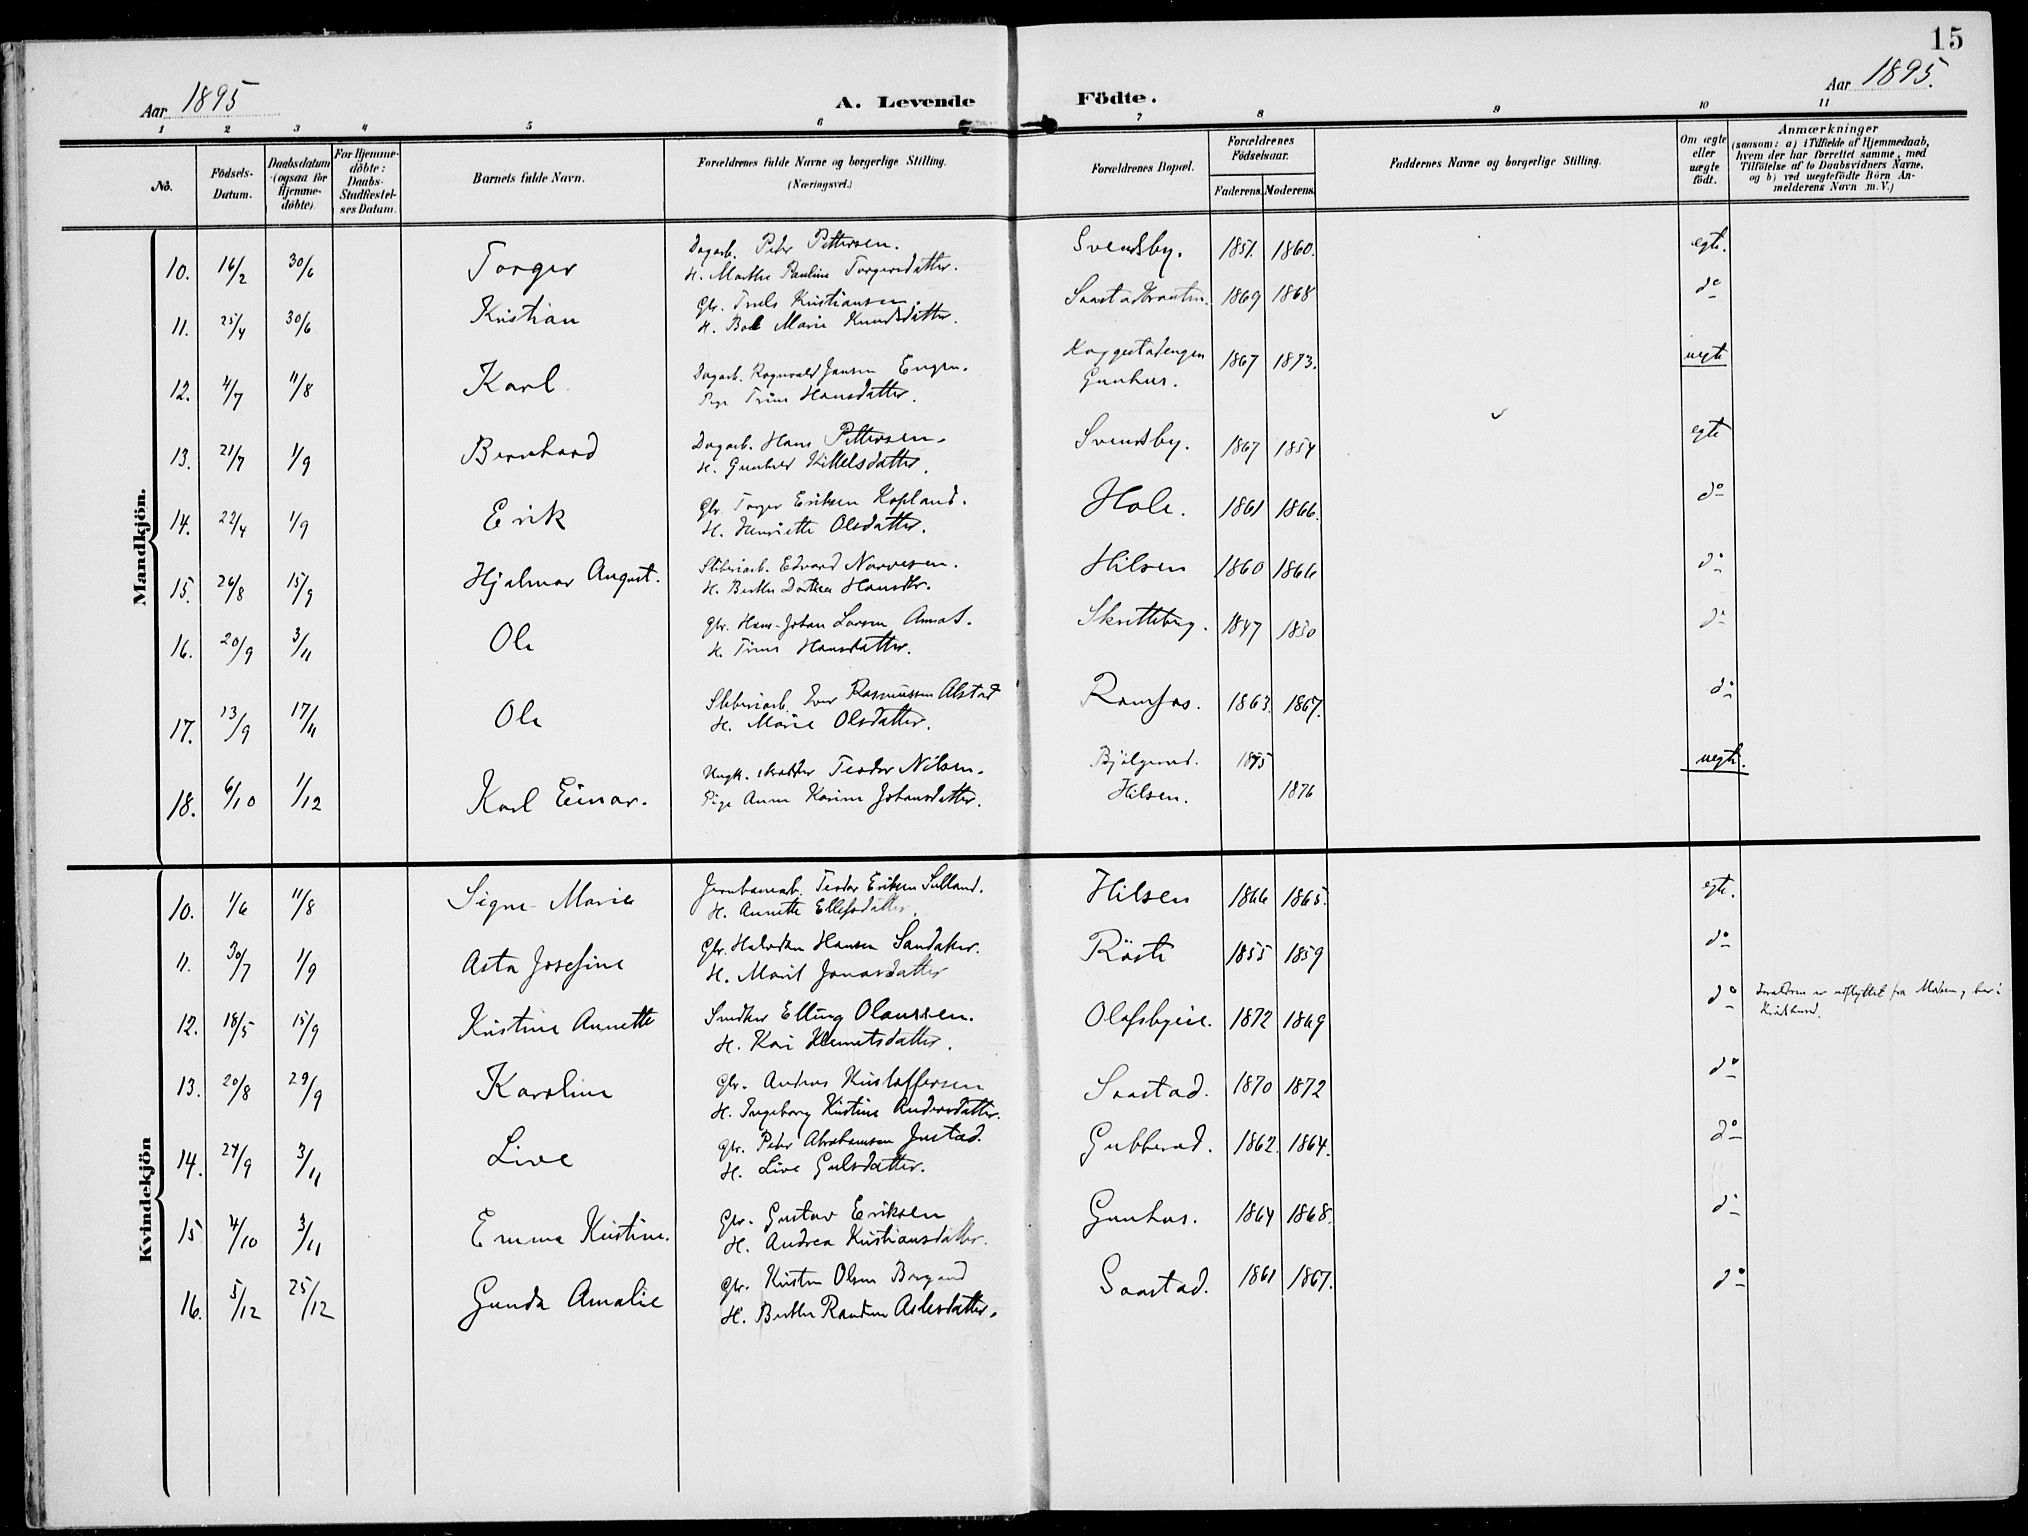 15
Aar 1895
A. Levende Födte.
Aar 1895.
1 2 3 4 5 6 7 8 9 10 11
No.
Födsels-Datum.
Daabsdatum (ogsaa for Hjemme-döbte).
For Hjemme-döbte: Daabs-Stadfæstel-ses Datum.
Barnets fulde Navn.
Forældrenes fulde Navne og borgerlige Stilling.
(Næringsvei.)
Forældrenes Bopæl.
Forældrenes Födselsaar.
Faderens. Moderens.
Faddernes Navne og borgerlige Stilling.
Om ægte eller uægte födt.
Anmærkninger
(saasom: a) i Tilfælde af Hjemmedaab,
hvem der har forrettet samme, med
Tilföielse af to Daabsvidners Navne,
og b) ved uægtefödte Börn An-
melderens Navn m.V.)
Mandkjön.
10. 16/2 30/6 Torger Dagarb. Peder Pettersen. Svendsby. 1851. 1860. egte.
H. Marthe Pauline Torgersdatter.
11. 25/4 30/6 Kristian Gbr. Truls Kristiansen 1869 1868 do
H. Bol Marie Knudsdatter.
12. 4/7 11/8 Karl Dagarb. Ragnvald Jansen Engen. Kaggestadengen 1867 1873. uegte
Pige Trine Hansdatter. Gunhus.
13. 21/7 1/9 Bernhard Dagarb. Hans Pettersen. Svendsby. 1867 1854 egte
H. Gunhild Kittelsdatter.
14. 22/4 1/9 Erik Gbr. Torger Eriksen Kopland. Hole. 1861 1866. do
H. Henriette Olsdatter.
15. 26/8 15/9 Hjalmar August. Sliberiarb. Edvard Narvesen. Hilsen 1860 1866 do
H. Berthe Dorthea Hansdtr.
16. 20/9 3/11 Ole Gbr. Hans-Johan Larsen 1847 1850 do
H. Trine Hansdatter.
17. 13/9 17/11 Ole Sliberiarb. Iver Rasmussen Alstad Ramfos. 1863. 1867. do
H. Marie Olsdatter.
18. 6/10 1/12 Karl Einar. Ungk. skrædder Teodor Nilsen. Bjölgerud. 1875 uegte.
Pige Anne Karine Johansdatter. Hilsen. 1876
Kvindekjön
10. 1/6 11/8 Signe Marie Jernbanearb. Teodor Eriksen Hilsen 1866 1865. egte.
H. Annette Ellefsdatter.
11. 30/7 1/9 Asta Josefine Gbr. Halvdan Hansen Sandaker. Röste 1855 1859 do
H. Marit Jonasdatter
12. 18/5 15/9 Kristine Annette Snedker Elling Olaussen. Olafsbyeie. 1872 1869 do Forældrene er udflyttet fra Modum, bor i
H. Kari Klemetsdatter.
13. 20/8 29/9 Karoline Gbr. Andreas Kristoffersen Saastad. 1870 1872 do
H. Ingeborg Kristine Andersdatter.
14. 24/9 3/11 Live Gbr. Peder Abrahamsen Gubberud. 1862. 1864. do
H. Live Gulsdatter.
15 4/10 3/11 Emma Kristine. Gbr. Gustav Eriksen Gunhus. 1864 1868. do
H. Andrea Kristiansdatter.
16. 5/12 25/12 Gunda Amalie Gbr. Kristen Olsen Saastad. 1861 1867. do
H. Berthe Randine Aslesdatter.